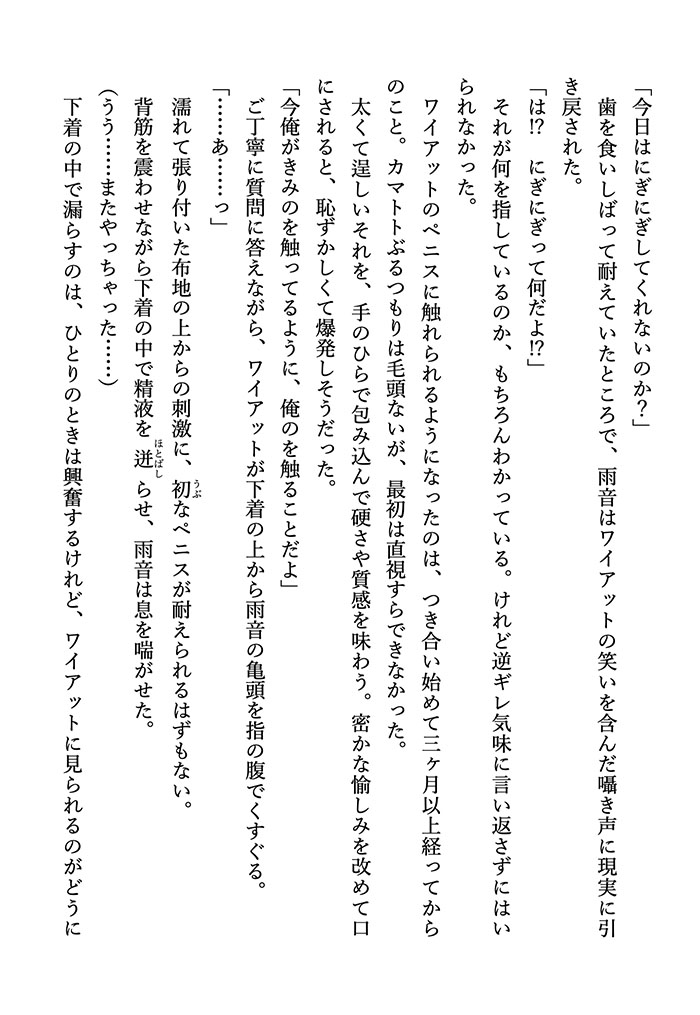 「今日はにぎにぎしてくれないのか？」
歯を食いしばって耐えていたところで、雨音はワイアットの笑いを含んだ囁き声に現実に引
き戻された。
「は!?　にぎにぎって何だよ!?」
それが何を指しているのか、もちろんわかっている。けれど逆ギレ気味に言い返さずにはい
られなかった。
ワイアットのペニスに触れられるようになったのは、つき合い始めて三ヶ月以上経ってから
のこと。カマトトぶるつもりは毛頭ないが、最初は直視すらできなかった。
太くて逞しいそれを、手のひらで包み込んで硬さや質感を味わう。密かな愉しみを改めて口
にされると、恥ずかしくて爆発しそうだった。
「今俺がきみのを触ってるように、俺のを触ることだよ」
ご丁寧に質問に答えながら、ワイアットが下着の上から雨音の亀頭を指の腹でくすぐる。
「……あ……っ」
濡れて張り付いた布地の上からの刺激に、初うぶなペニスが耐えられるはずもない。
背筋を震わせながら下着の中で精液を迸ほとばしらせ、雨音は息を喘がせた。
（うう……またやっちゃった……）
下着の中で漏らすのは、ひとりのときは興奮するけれど、ワイアットに見られるのがどうに